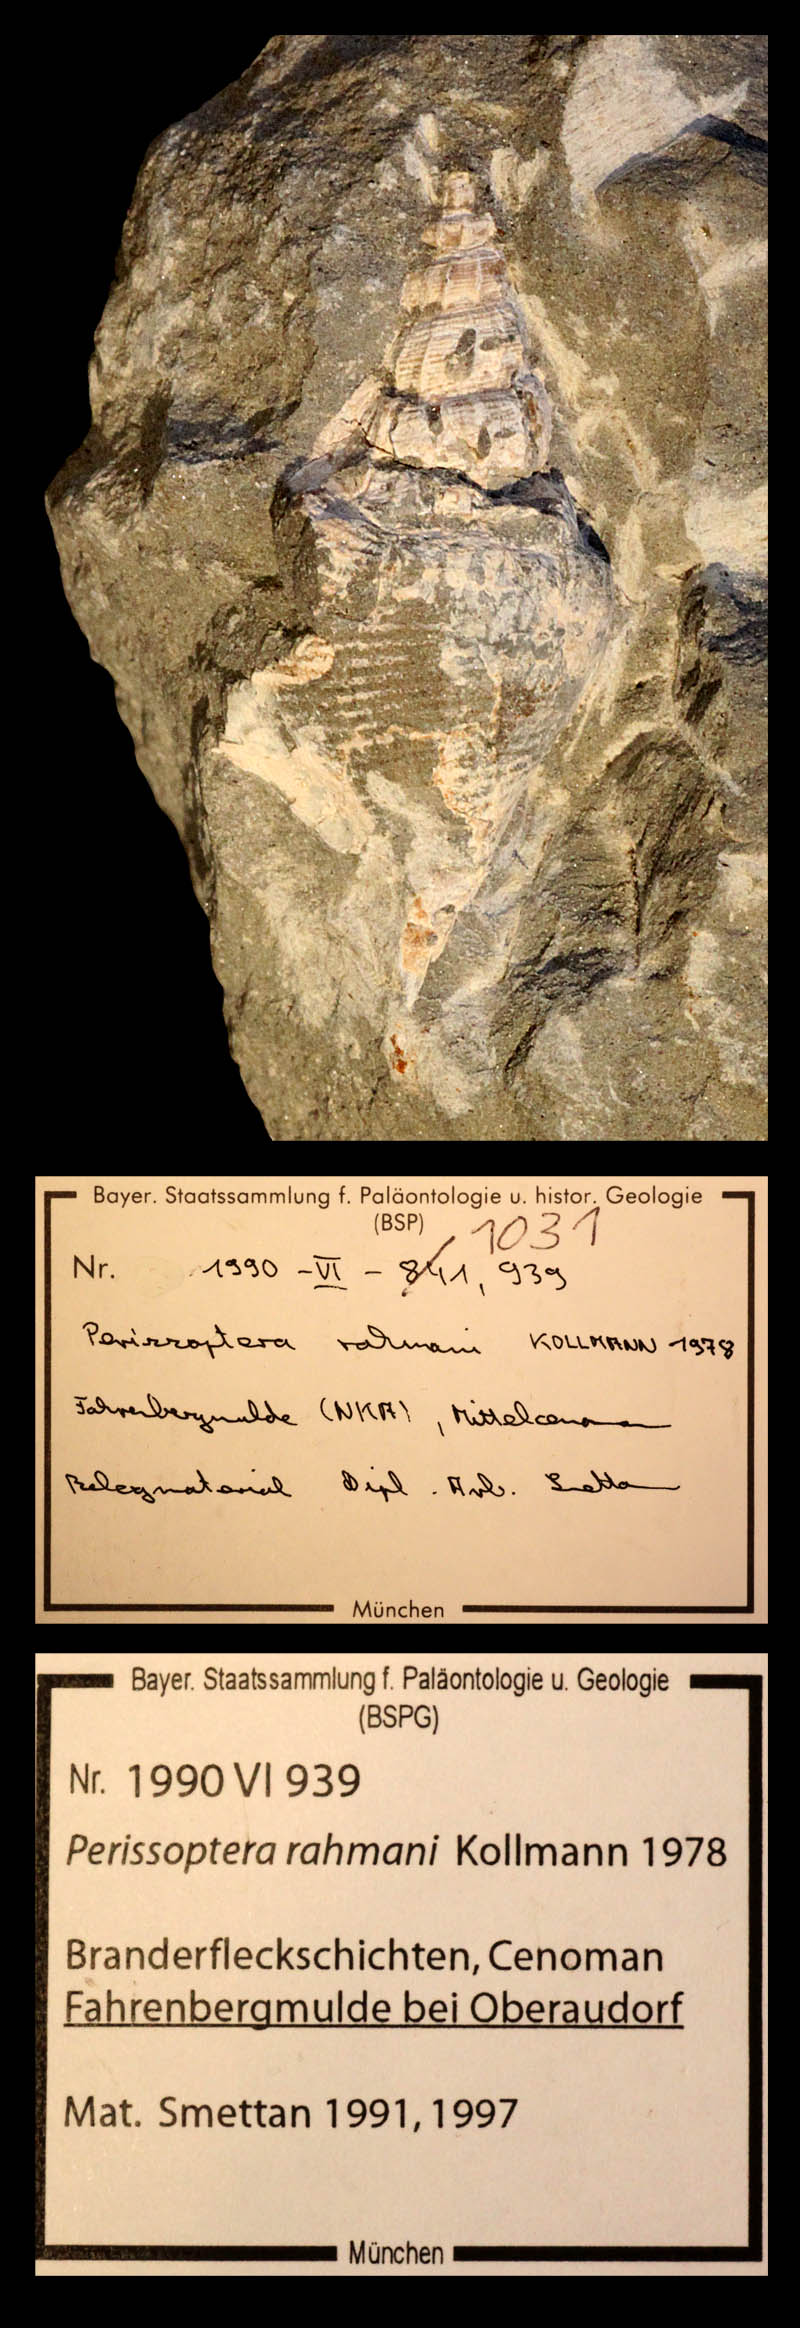 Bayer. Staatssammlung f. Paläontologie u. histor. Geologie
(BSP)
1031
Nr. 1990 - VI - 841, 939
Perissoptera rahmani KOLLMANN 1978
Fahrenbergmulde (NKA), Mittelcenoman
Belegmaterial Dipl. Arb. Smettan
München
Bayer. Staatssammlung f. Paläontologie u. Geologie
(BSPG)
Nr. 1990 VI 939
Perissoptera rahmani Kollmann 1978
Branderfleckschichten, Cenoman
Fahrenbergmulde bei Oberaudorf
Mat. Smettan 1991, 1997
München